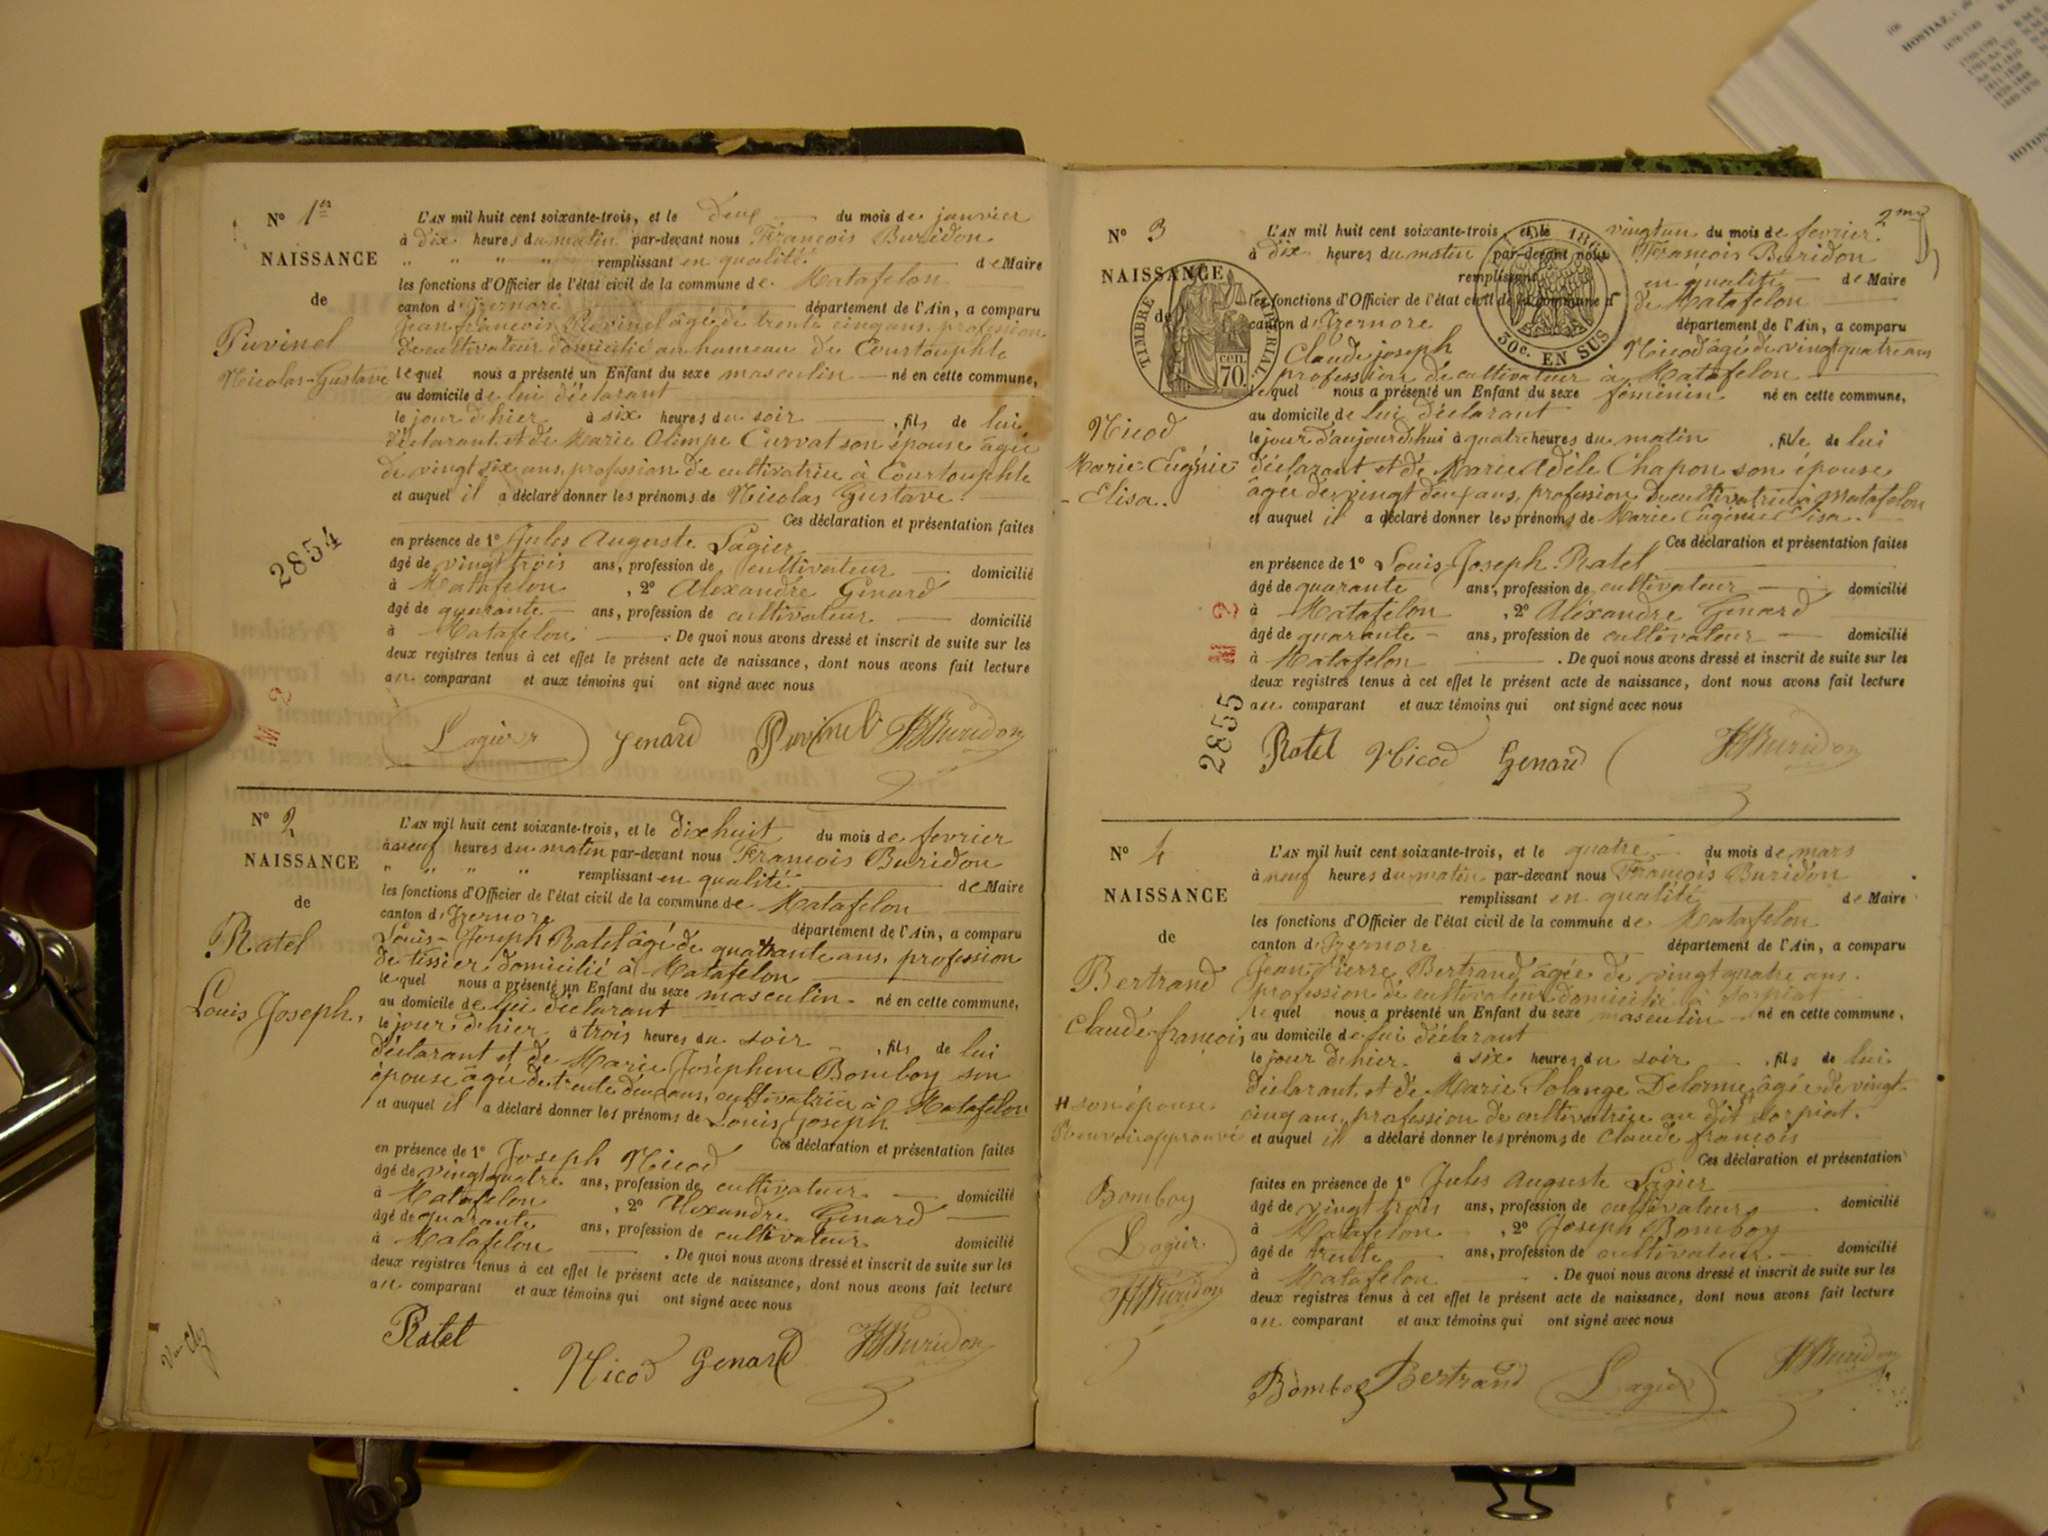 N° 1er
NAISSANCE
de
Puvinel
Nicolas-Gustave
L'AN mil huit cent soixante-trois, et le deux du mois de janvier
à dix heures du matin par-devant nous François Buridon
" " " " remplissant en qualité de Maire
les fonctions d'Officier de l'état civil de la commune de Matafelon
canton d'Izernore département de l'Ain, a comparu
Jean françois Puvinel âgé de trente cinq ans, profession
de cultivateur domicilié au hameau de Courtouphle
lequel nous a présenté un Enfant du sexe masculin né en cette commune,
au domicile de lui déclarant
le jour d'hier à six heures du soir , fils de lui
déclarant, et de Marie Olimpe Curvat son épouse âgée
de vingt six ans, profession de cultivatrice à Courtouphle
et auquel il a déclaré donner les prénoms de Nicolas Gustave
Ces déclaration et présentation faites
en présence de 1° Jules Auguste Lagier
âgé de vingt trois ans, profession de cultivateur domicilié
à Matafelon , 2° Alexandre Genard
âgé de quarante ans, profession de cultivateur domicilié
à Matafelon . De quoi nous avons dressé et inscrit de suite sur les
deux registres tenus à cet effet le présent acte de naissance, dont nous avons fait lecture
au comparant et aux témoins qui ont signé avec nous
Lagier Genard Puvinel Buridon
2854
M 2
N° 2
NAISSANCE
de
Ratel
Louis Joseph.
L'AN mil huit cent soixante-trois, et le dix huit du mois de fevrier
à neuf heures du matin par-devant nous François Buridon
" " " " remplissant en qualité de Maire
les fonctions d'Officier de l'état civil de la commune de Matafelon
canton d'Izernore département de l'Ain, a comparu
Louis-Joseph Ratel âgé de quatrante ans, profession
de tissier domicilié à Matafelon
lequel nous a présenté un Enfant du sexe masculin né en cette commune,
au domicile de lui déclarant
le jour d'hier à trois heures du soir , fils de lui
déclarant et de Marie Joséphine Bomboy son
épouse âgée de trente deux ans, cultivatrice à Matafelon
et auquel il a déclaré donner les prénoms de Louis Joseph
Ces déclaration et présentation faites
en présence de 1° Joseph Nicod
âgé de vingt quatre ans, profession de cultivateur domicilié
à Matafelon , 2° Alexandre Genard
âgé de quarante ans, profession de cultivateur domicilié
à Matafelon . De quoi nous avons dressé et inscrit de suite sur les
deux registres tenus à cet effet le présent acte de naissance, dont nous avons fait lecture
au comparant et aux témoins qui ont signé avec nous
Ratel Nicod Genard Buridon
2me
N° 3
NAISSANCE
de
Nicod
Marie Eugénie
- Elisa.
TIMBRE IMPERIAL
70 cen.
30c. EN SUS
L'AN mil huit cent soixante-trois, et le vingt un du mois de fevrier
à dix heures du matin par-devant nous François Buridon
remplissant en qualité de Maire
les fonctions d'Officier de l'état civil de la commune d de Matafelon
canton d'Izernore département de l'Ain, a comparu
Claude joseph Nicod âgé de vingt quatre ans
profession de cultivateur à Matafelon
lequel nous a présenté un Enfant du sexe féminin né en cette commune,
au domicile de lui déclarant
le jour d'aujourd'hui à quatre heures du matin , fille de lui
déclarant et de Marie Adèle Chapon son épouse
âgée de vingt deux ans, profession de cultivatrice à Matafelon
et auquel il a déclaré donner les prénoms de Marie Eugénie Elisa.
Ces déclaration et présentation faites
en présence de 1° Louis Joseph Ratel
âgé de quarante ans, profession de cultivateur domicilié
à Matafelon , 2° Aléxandre Genard
âgé de quarante ans, profession de cultivateur domicilié
à Matafelon . De quoi nous avons dressé et inscrit de suite sur les
deux registres tenus à cet effet le présent acte de naissance, dont nous avons fait lecture
au comparant et aux témoins qui ont signé avec nous
Ratel Nicod Genard Buridon
2855
M 2
N° 4
NAISSANCE
de
Bertrand
Claude françois
# son épouse
Renvoi approuvé
Bomboy
Lagier
Buridon
L'AN mil huit cent soixante-trois, et le quatre du mois de mars
à neuf heures du matin par-devant nous François Buridon
remplissant en qualité de Maire
les fonctions d'Officier de l'état civil de la commune de Matafelon
canton d'Izernore département de l'Ain, a comparu
Jean Pierre Bertrand âgée de vingt quatre ans
profession de cultivateur domicilié à Sorpiat
lequel nous a présenté un Enfant du sexe masculin né en cette commune,
au domicile de lui déclarant
le jour d'hier à six heures du soir , fils de lui
déclarant, et de Marie Solange Delorme # âgée de vingt-
cinq ans, profession de cultivatrice au dit Sorpiat.
et auquel il a déclaré donner les prénoms de Claude françois
Ces déclaration et présentation
faites en présence de 1° Jules Auguste Lagier
âgé de vingt trois ans, profession de cultivateur domicilié
à Matafelon , 2° Joseph Bomboy
âgé de trente ans, profession de cultivateur domicilié
à Matafelon . De quoi nous avons dressé et inscrit de suite sur les
deux registres tenus à cet effet le présent acte de naissance, dont nous avons fait lecture
au comparant et aux témoins qui ont signé avec nous
Bomboy Bertrand Lagier Buridon